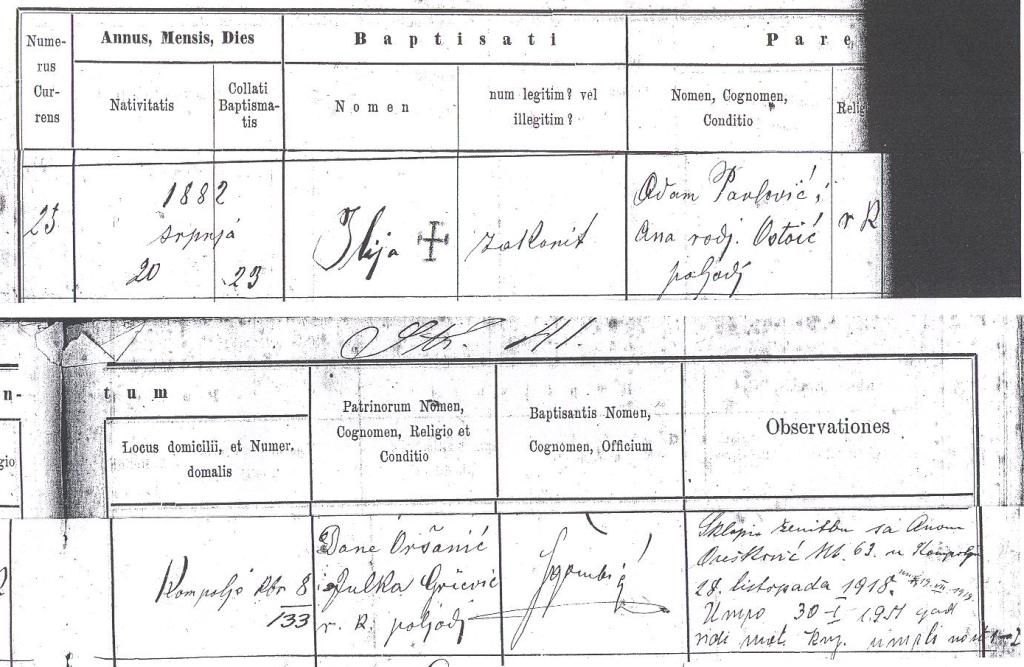 Annus, Mensis, Dies
Baptisati
Pare
Nume-
rus
Cur-
rens
Nativitatis
Collati
Baptisma-
tis
Nomen
num legitim? vel
illegitim?
Nomen, Cognomen,
Conditio
Relig
1882
srpnja
20
23
Ilija
zakonit
Adam Pavlović i
Ana rodj. Ostoić
poljodj
r R
Str. 41.
n-
tum
gio
Locus domicilii, et Numer.
domalis
Patrinorum Nomen,
Cognomen, Religio et
Conditio
Baptisantis Nomen,
Cognomen, Officium
Observationes
Kompolje kbr 8
133
Dane Oršanić
i Julka Grčević
r. k. poljodj
Sklopio ženitbu sa Anom
Orešković kb. 63. u Kompolju
28. listopada 1918.
Umro 30-I-1951 god
vidi mat. knj. umrlih